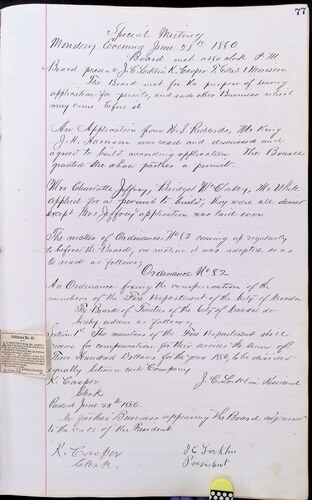 77
Special Meeting
Monday Evening June 28th 1880
Board met at 8 oclock P.M.
Board present J.C. Locklin K. Casper
The Board met for the purpose of
application for permits, and such other Business which
may come before it
An Application from W.S. Richards, Mr King
J.A. was read and discussed and
agreed to built according application The Board
granted the above parties a permit.
Mrs Charlotte Jeffrey, Bridget McClosky, Mr White
applied for a "permit to build", they were all denied
except Mrs Jeffrey application was laid over
The matter of Ordinance No 82 coming up regularly
before the Board, on motion it was adopted
to read as follows;
Ordinance No 82
An Ordinance fixing the compensation of the
members of the Fire Department of the City of
The Board of Trustees of the City of do
ordain as follows.
Section 1st The members of the Fire Department shall
receive for compensation for their services the sum of
Three Hundred Dollars for the year 1880, to be divided
equally between each Company
K. Casper
Clerk
J.C. Locklin President
Passed June 28th 1880.
No further Business appearing the Board adjourned
to the call of the President
K. Casper
Clerk.
J C Locklin
President